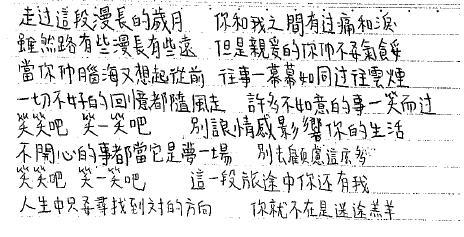 走过這段漫長的歲月 你和我之間有过痛和淚
雖然路有些漫長有些遠 但是親爱的你仰不要氣餒
當你仰腦海又想起從前 往事一幕幕如同过往雲煙
一切不好的回憶都隨風走 許多不如意的事一笑而过
笑笑吧 笑一笑吧 別讓情感影響你的生活
不開心的事都當它是夢一場 別去顧慮這麼多
笑笑吧 笑一笑吧 這一段旅途中你还有我
人生中只要尋找到对的方向 你就不在是迷途羔羊